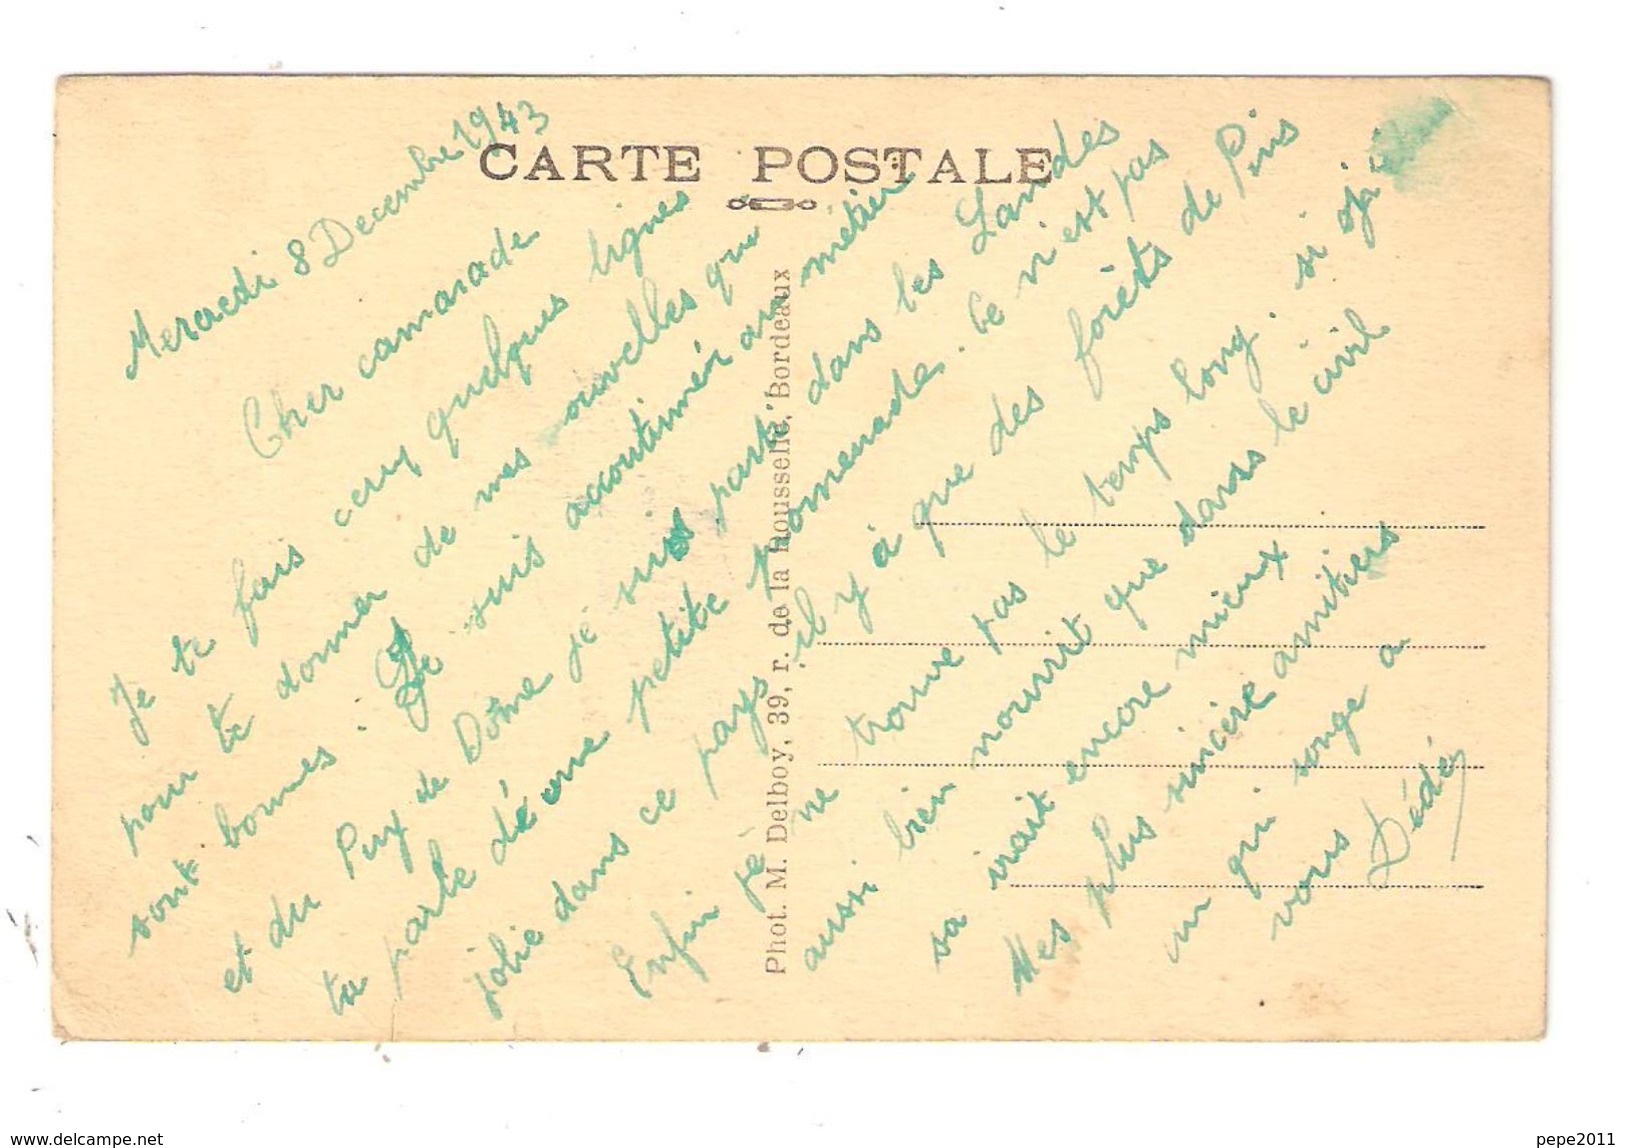 CARTE POSTALE
Mercredi 8 Decembre 1943
Cher camarade
Je te fais ceux quelques lignes
pour te donner de mes nouvelles qui
sont bonnes. Je suis accoutumér au métier
et du Puy de Dôme je suis parti dans les Landes
ta parle d'une petite promenade. Ce n'est pas
jolie dans ce pays il y à que des forêts de Pins
Enfin je ne trouve pas le temps long. si
aussi bien nourrit que dans le civil
sa irait encore mieux
Mes plus sincère amitiers
un qui songe a
vous Dédé
Phot. M. Delboy, 39, r. de la Rousselle, Bordeaux
www.delcampe.net
pepe2011